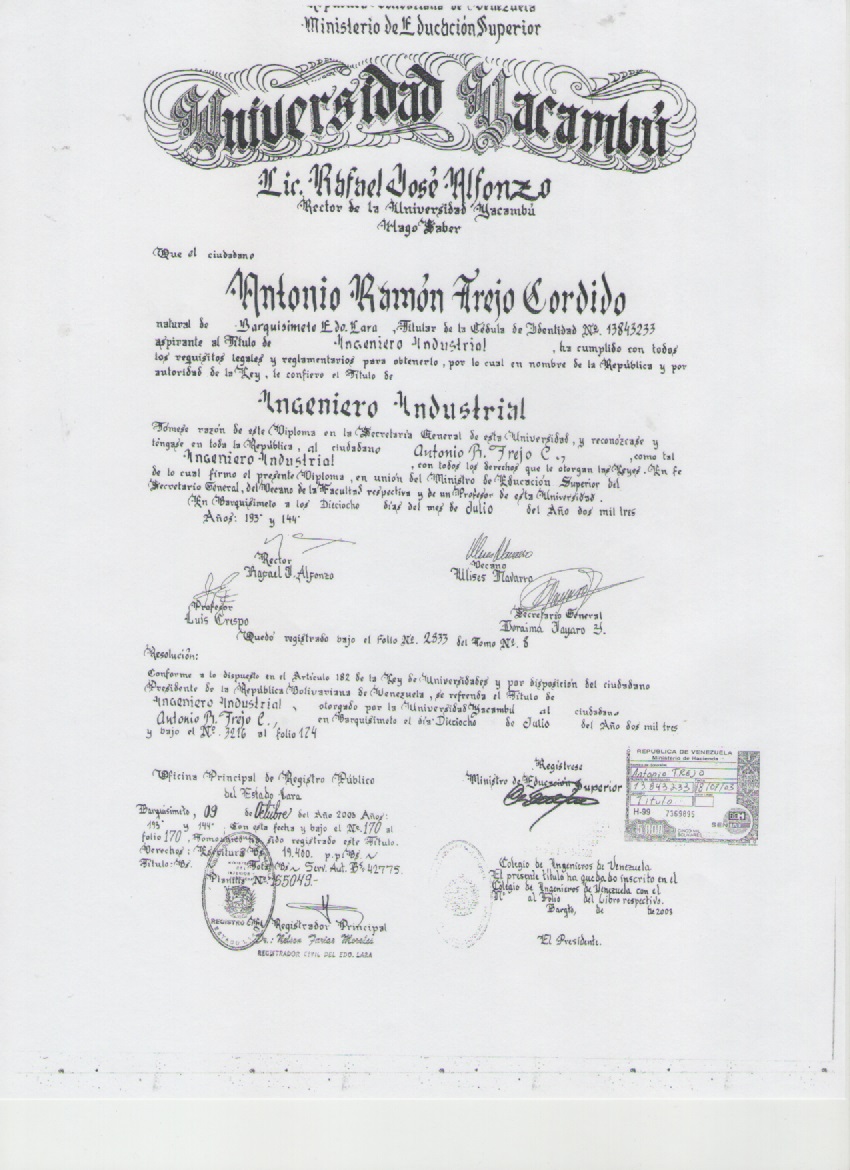 República Bolivariana de Venezuela
Ministerio de Educación Superior
Universidad Yacambú
Lic. Rafael José Alfonzo
Rector de la Universidad Yacambú
Hago Saber
Que el ciudadano
Antonio Ramón Trejo Cordido
natural de Barquisimeto Edo. Lara, Titular de la Cédula de Identidad Nº. 13843233
aspirante al Título de Ingeniero Industrial, ha cumplido con todos
los requisitos legales y reglamentarios para obtenerlo, por lo cual en nombre de la República y por
autoridad de la Ley, le confiero el Título de
Ingeniero Industrial
Tómese razón de este Diploma en la Secretaría General de esta Universidad, y reconózcase y
téngase en toda la República, al ciudadano Antonio R. Trejo C., como tal
Ingeniero Industrial, con todos los derechos que le otorgan las Leyes. En fe
de lo cual firmo el presente Diploma, en unión del Ministro de Educación Superior del
Secretario General, del Decano de la Facultad respectiva y de un Profesor de esta Universidad.
En Barquisimeto a los Dieciocho días del mes de Julio del Año dos mil tres
Años: 193º y 144º
Rector
Rafael J. Alfonzo
Decano
Ulises Navarro
Profesor
Luis Crespo
Secretario General
Doraima Tayaro Y.
Quedó registrado bajo el Folio Nº. 2333 del Tomo Nº. 8
Resolución:
Conforme a lo dispuesto en el Artículo 182 de la Ley de Universidades y por disposición del ciudadano
Presidente de la República Bolivariana de Venezuela, se refrenda el Título de
Ingeniero Industrial, otorgado por la Universidad Yacambú al ciudadano
Antonio R. Trejo C., en Barquisimeto el día Dieciocho de Julio del Año dos mil tres
y bajo el Nº. 3216 al folio 124
Regístrese
Ministro de Educación Superior
REPUBLICA DE VENEZUELA
Ministerio de Hacienda
Antonio TREJO
13.843.233
Título
H-99 7369895
Oficina Principal de Registro Público
del Estado Lara
Barquisimeto, 09 de Octubre del Año 2003 Años:
193º y 144º. Con esta fecha y bajo el Nº. 170 al
folio 170, Tomo ha sido registrado este Título.
Derechos: Escritura Bs. 19.400. p.pl Bs
Título: Bs. Total Bs Serv. Aut. Bs 42775.
Planilla Nº 65049.-
El Registrador Principal
Dr.: Nelson Farias Morales
REGISTRADOR CIVIL DEL EDO. LARA
Colegio de Ingenieros de Venezuela
El presente título ha quedado inscrito en el
Colegio de Ingenieros de Venezuela con el
Nº. al Folio del Libro respectivo.
Barqto, de de 2003
El Presidente.